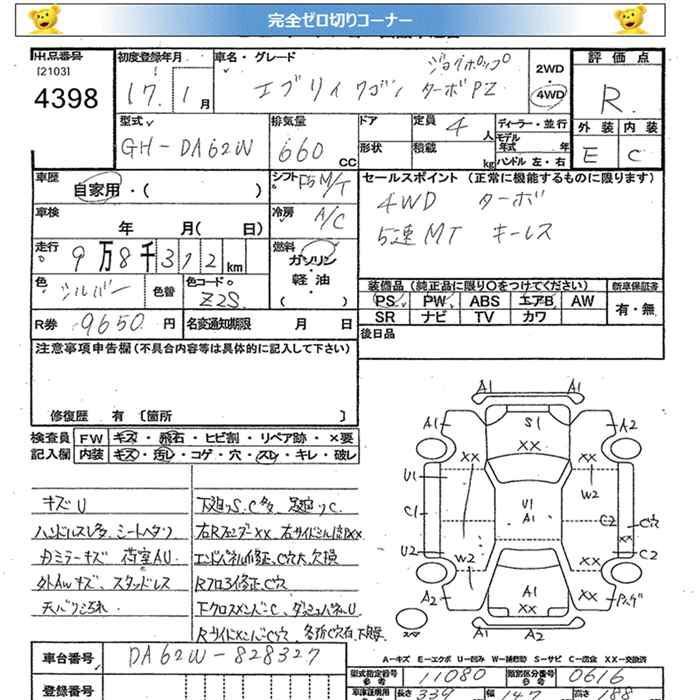 完全ゼロ切りコーナー
出品番号 初度登録年月 車名・グレード ジョイポップ 2WD 評価点
[2103] 4398 17年1月 エブリイワゴン ターボPZ 4WD R
型式 排気量 ドア 定員 4人 ディーラー・並行 外装 内装
GH-DA62W 660cc 形状 積載 kg モデル年式 年 ハンドル 左・右 E C
車歴 自家用・( ) シフト F5M/T セールスポイント (正常に機能するものに限ります)
車検 年 月(日) 冷房 A/C 4WD ターボ
走行 9万8千312km 燃料 ガソリン 軽油 5速MT キーレス
色 シルバー 色替 色コード Z2S 装備品(純正品に限り〇をつけてください) 新車保証書
PS PW ABS エアB AW 有・無
SR ナビ TV カワ
R券 9650円 名変通知期限 月 日 後日品
注意事項申告欄(不具合内容等は具体的に記入して下さい)
修復歴 有 [箇所 ]
検査員 FW キズ・飛石・ヒビ割・リペア跡・×要
記入欄 内装 キズ・汚レ・コゲ・穴・スレ・キレ・破レ
キズU 下廻りS、C多、足廻りC
ハンドルスレ多、シートヘタリ
カミラーキズ 荷室AU エンドパネル修正、C穴大、欠損
外AWキズ、スタッドレス Rフロア修正、C穴
天バリ汚れ 下クロスメンバーC、ダッシュパネルU
RサイドメンバーC穴
A1 A1
A1 S1 A2
XX
XX XX
U1 W2
C1 U1 A1 C2 C穴
XX
U2 W2 XX C2
A2 A1 XX XX
A2
A-キズ E-エクボ U-凹み W-補修跡 S-サビ C-腐食 XX-交換済
車台番号 DA62W-828327 型式指定番号 11080 類別区分番号 0616
登録番号 長さ 339 幅 147 高さ 188